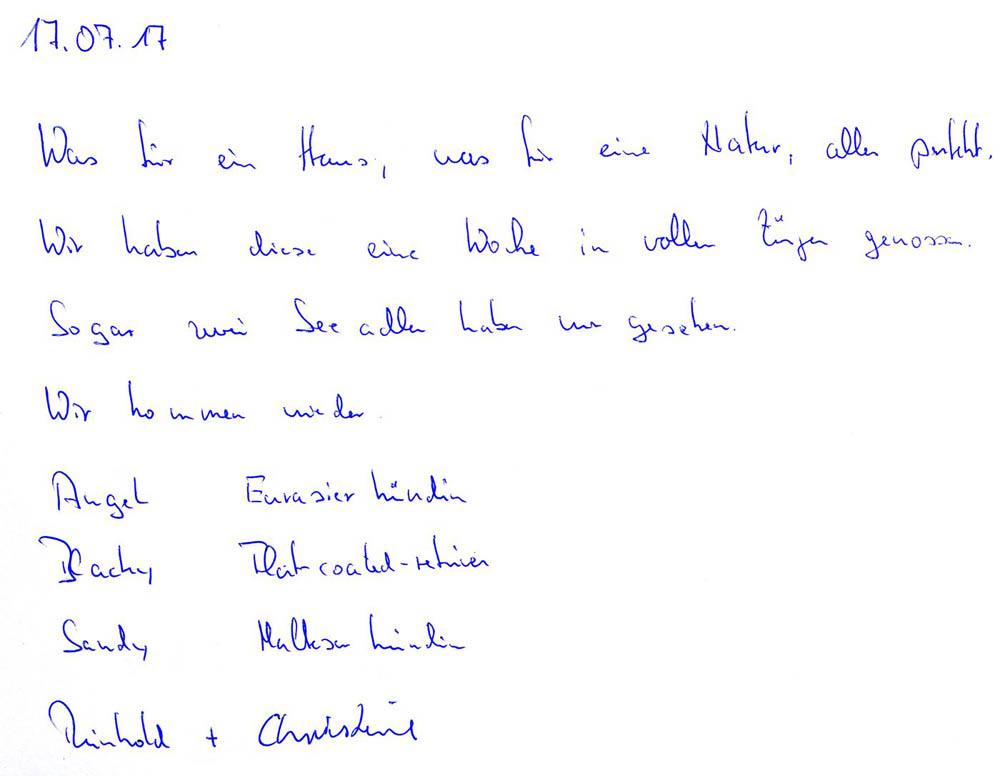 17.07.17
Was für ein Haus, was für eine Natur, alles perfekt.
Wir haben diese eine Woche in vollen Zügen genossen.
Sogar zwei Seeadler haben wir gesehen.
Wir kommen wieder.
Angel Eurasier hündin
Blacky Flatcoated-retriever
Sandy Malteser hündin
Reinhold + Christine